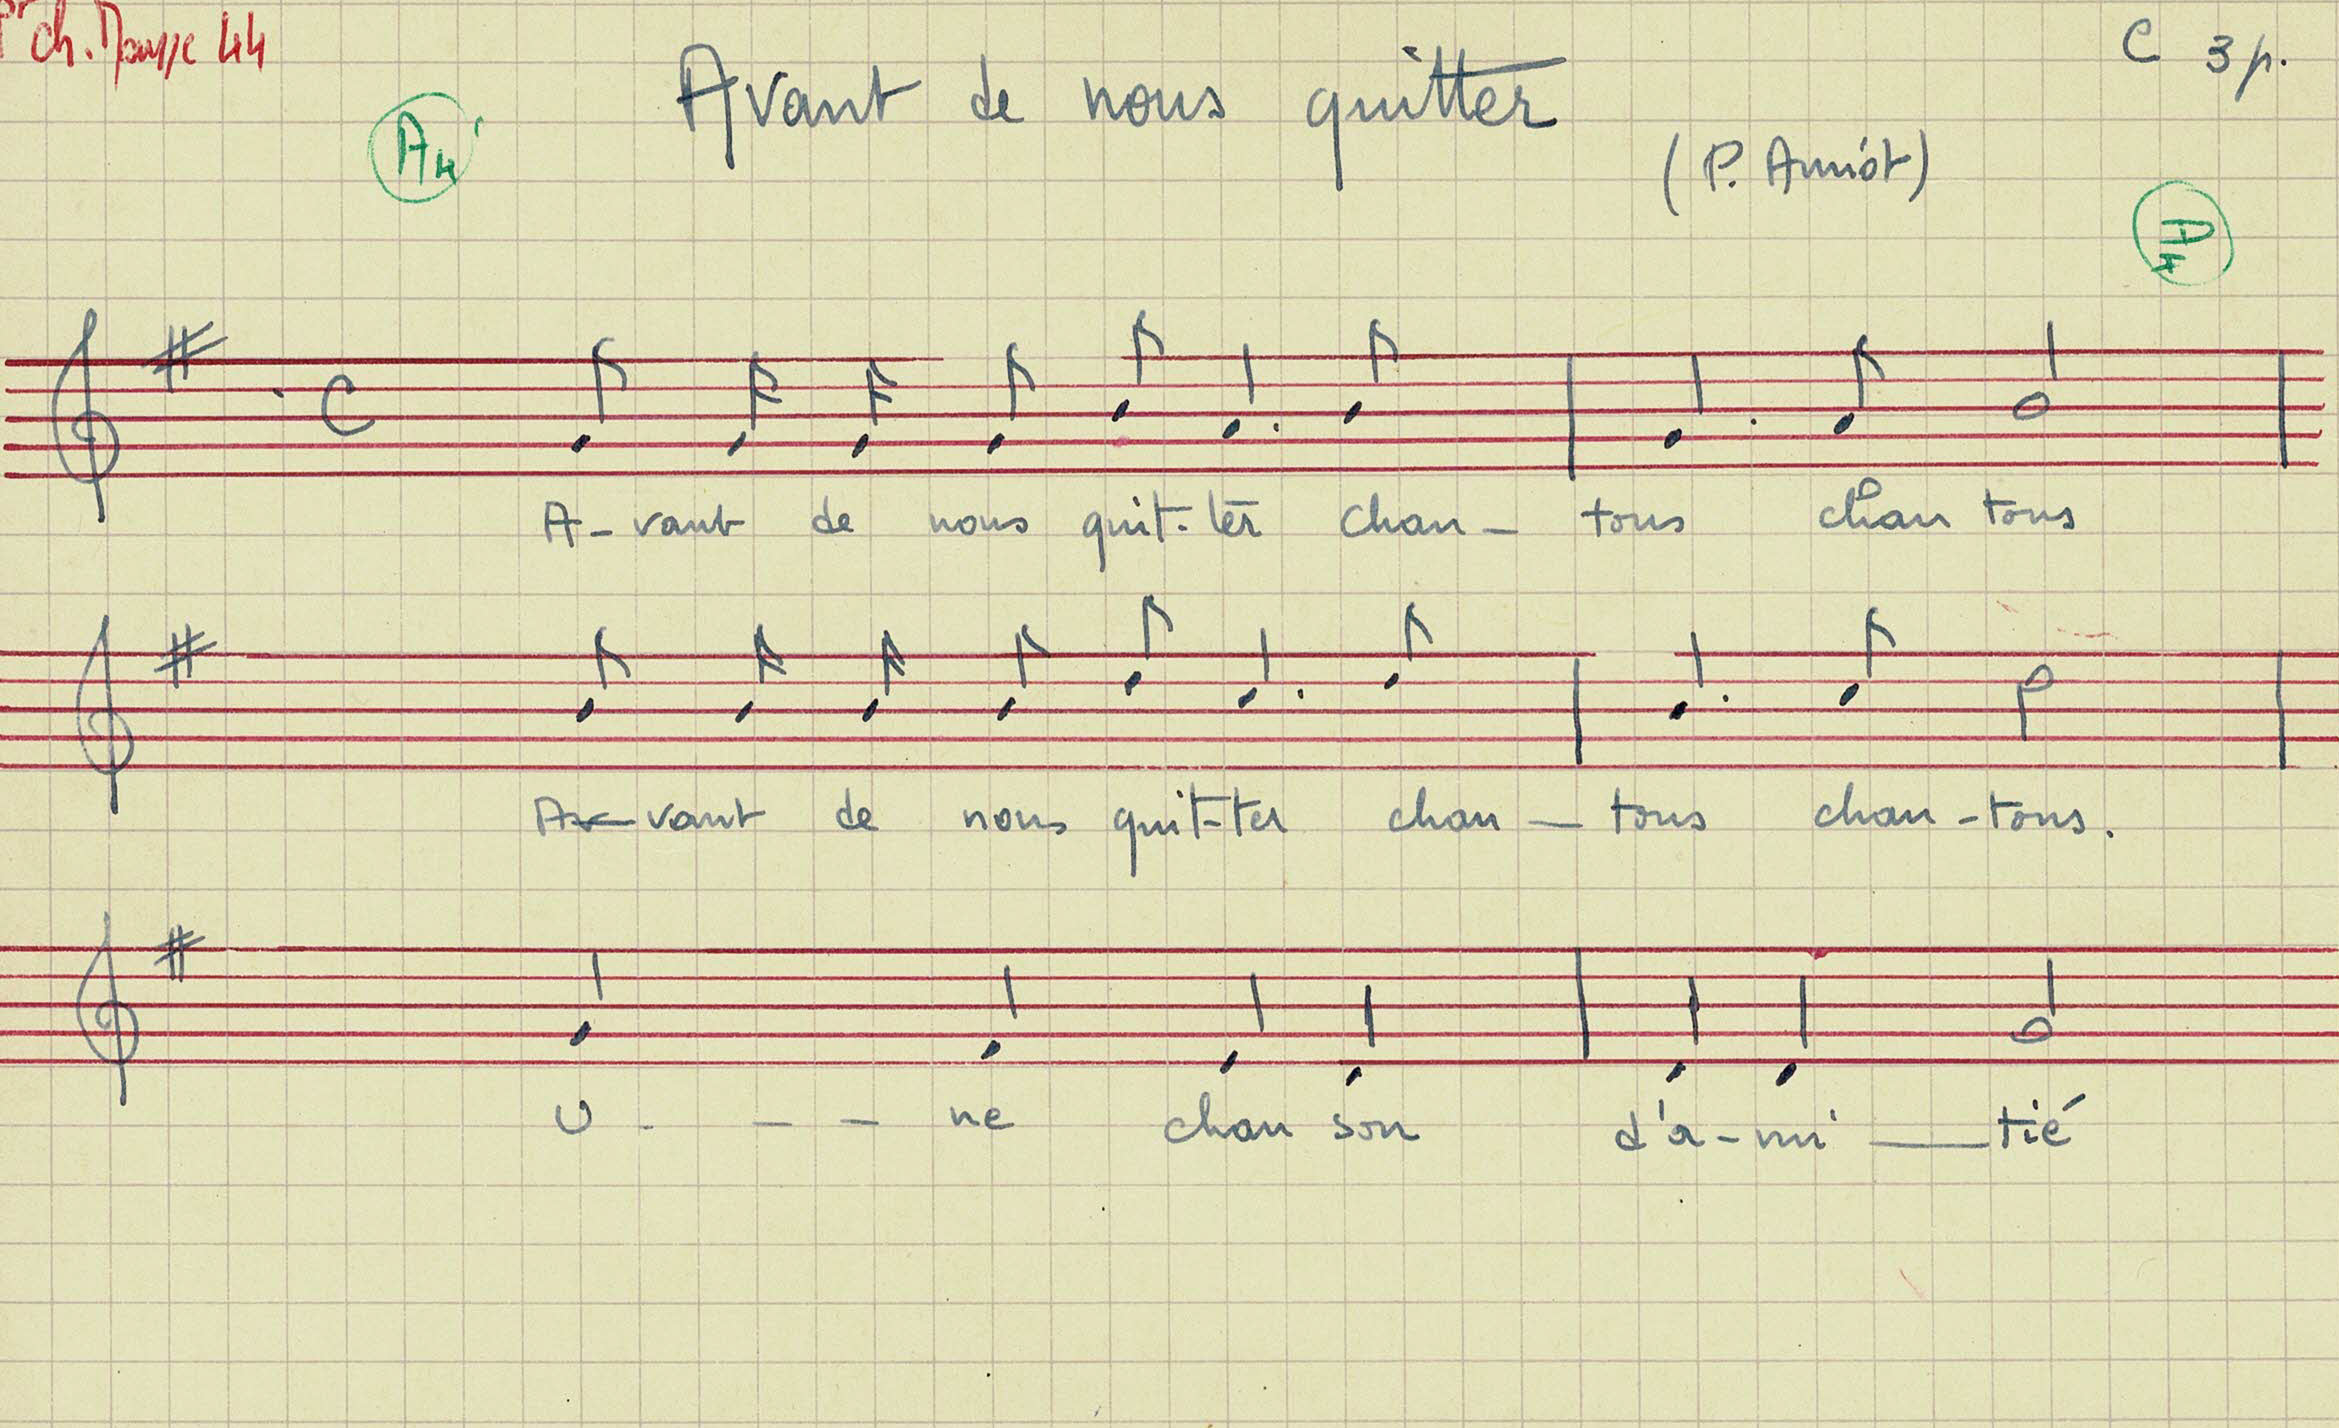 ch. 44
C 3 p.
Avant de nous quitter
A4
(P. Amiot)
C
A - vant de nous quit - ter chan - tons chan tons
A - vant de nous quit - ter chan - tons chan - tons.
U - - - ne chan son d'a - mi - tié